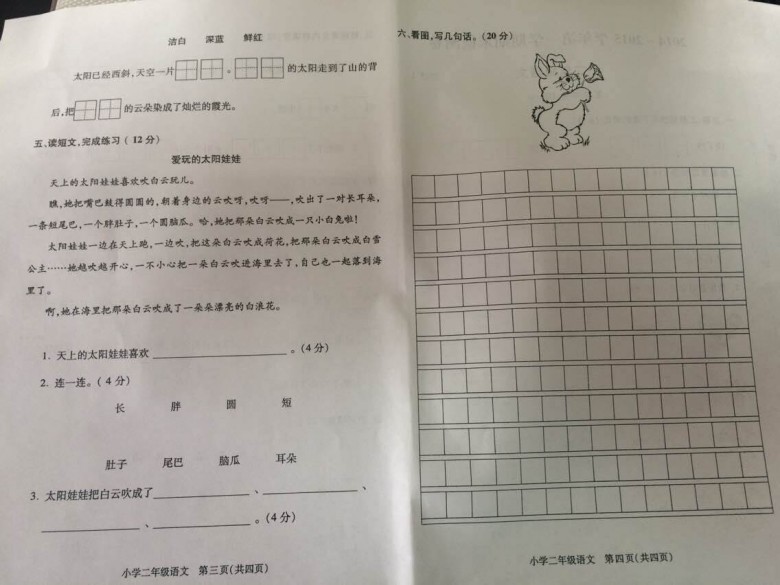 洁白 深蓝 鲜红
太阳已经西斜,天空一片 。 的太阳走到了山的背
后,把 的云朵染成了灿烂的霞光。
五、读短文,完成练习(12分)
爱玩的太阳娃娃
天上的太阳娃娃喜欢吹白云玩儿。
瞧,她把嘴巴鼓得圆圆的,朝着身边的云吹呀,吹呀——,吹出了一对长耳朵,
一条短尾巴,一个胖肚子,一个圆脑瓜。哈,她把那朵白云吹成一只小白兔啦!
太阳娃娃一边在天上跑,一边吹,把这朵白云吹成荷花,把那朵白云吹成白雪
公主……她越吹越开心,一不小心把一朵白云吹进海里去了,自己也一起落到海
里了。
啊,她在海里把那朵白云吹成了一朵朵漂亮的白浪花。
1. 天上的太阳娃娃喜欢 。(4分)
2. 连一连。(4分)
长 胖 圆 短
肚子 尾巴 脑瓜 耳朵
3. 太阳娃娃把白云吹成了 、 、
、 。(4分)
小学二年级语文 第三页(共四页)
六、看图,写几句话。(20分)
小学二年级语文 第四页(共四页)